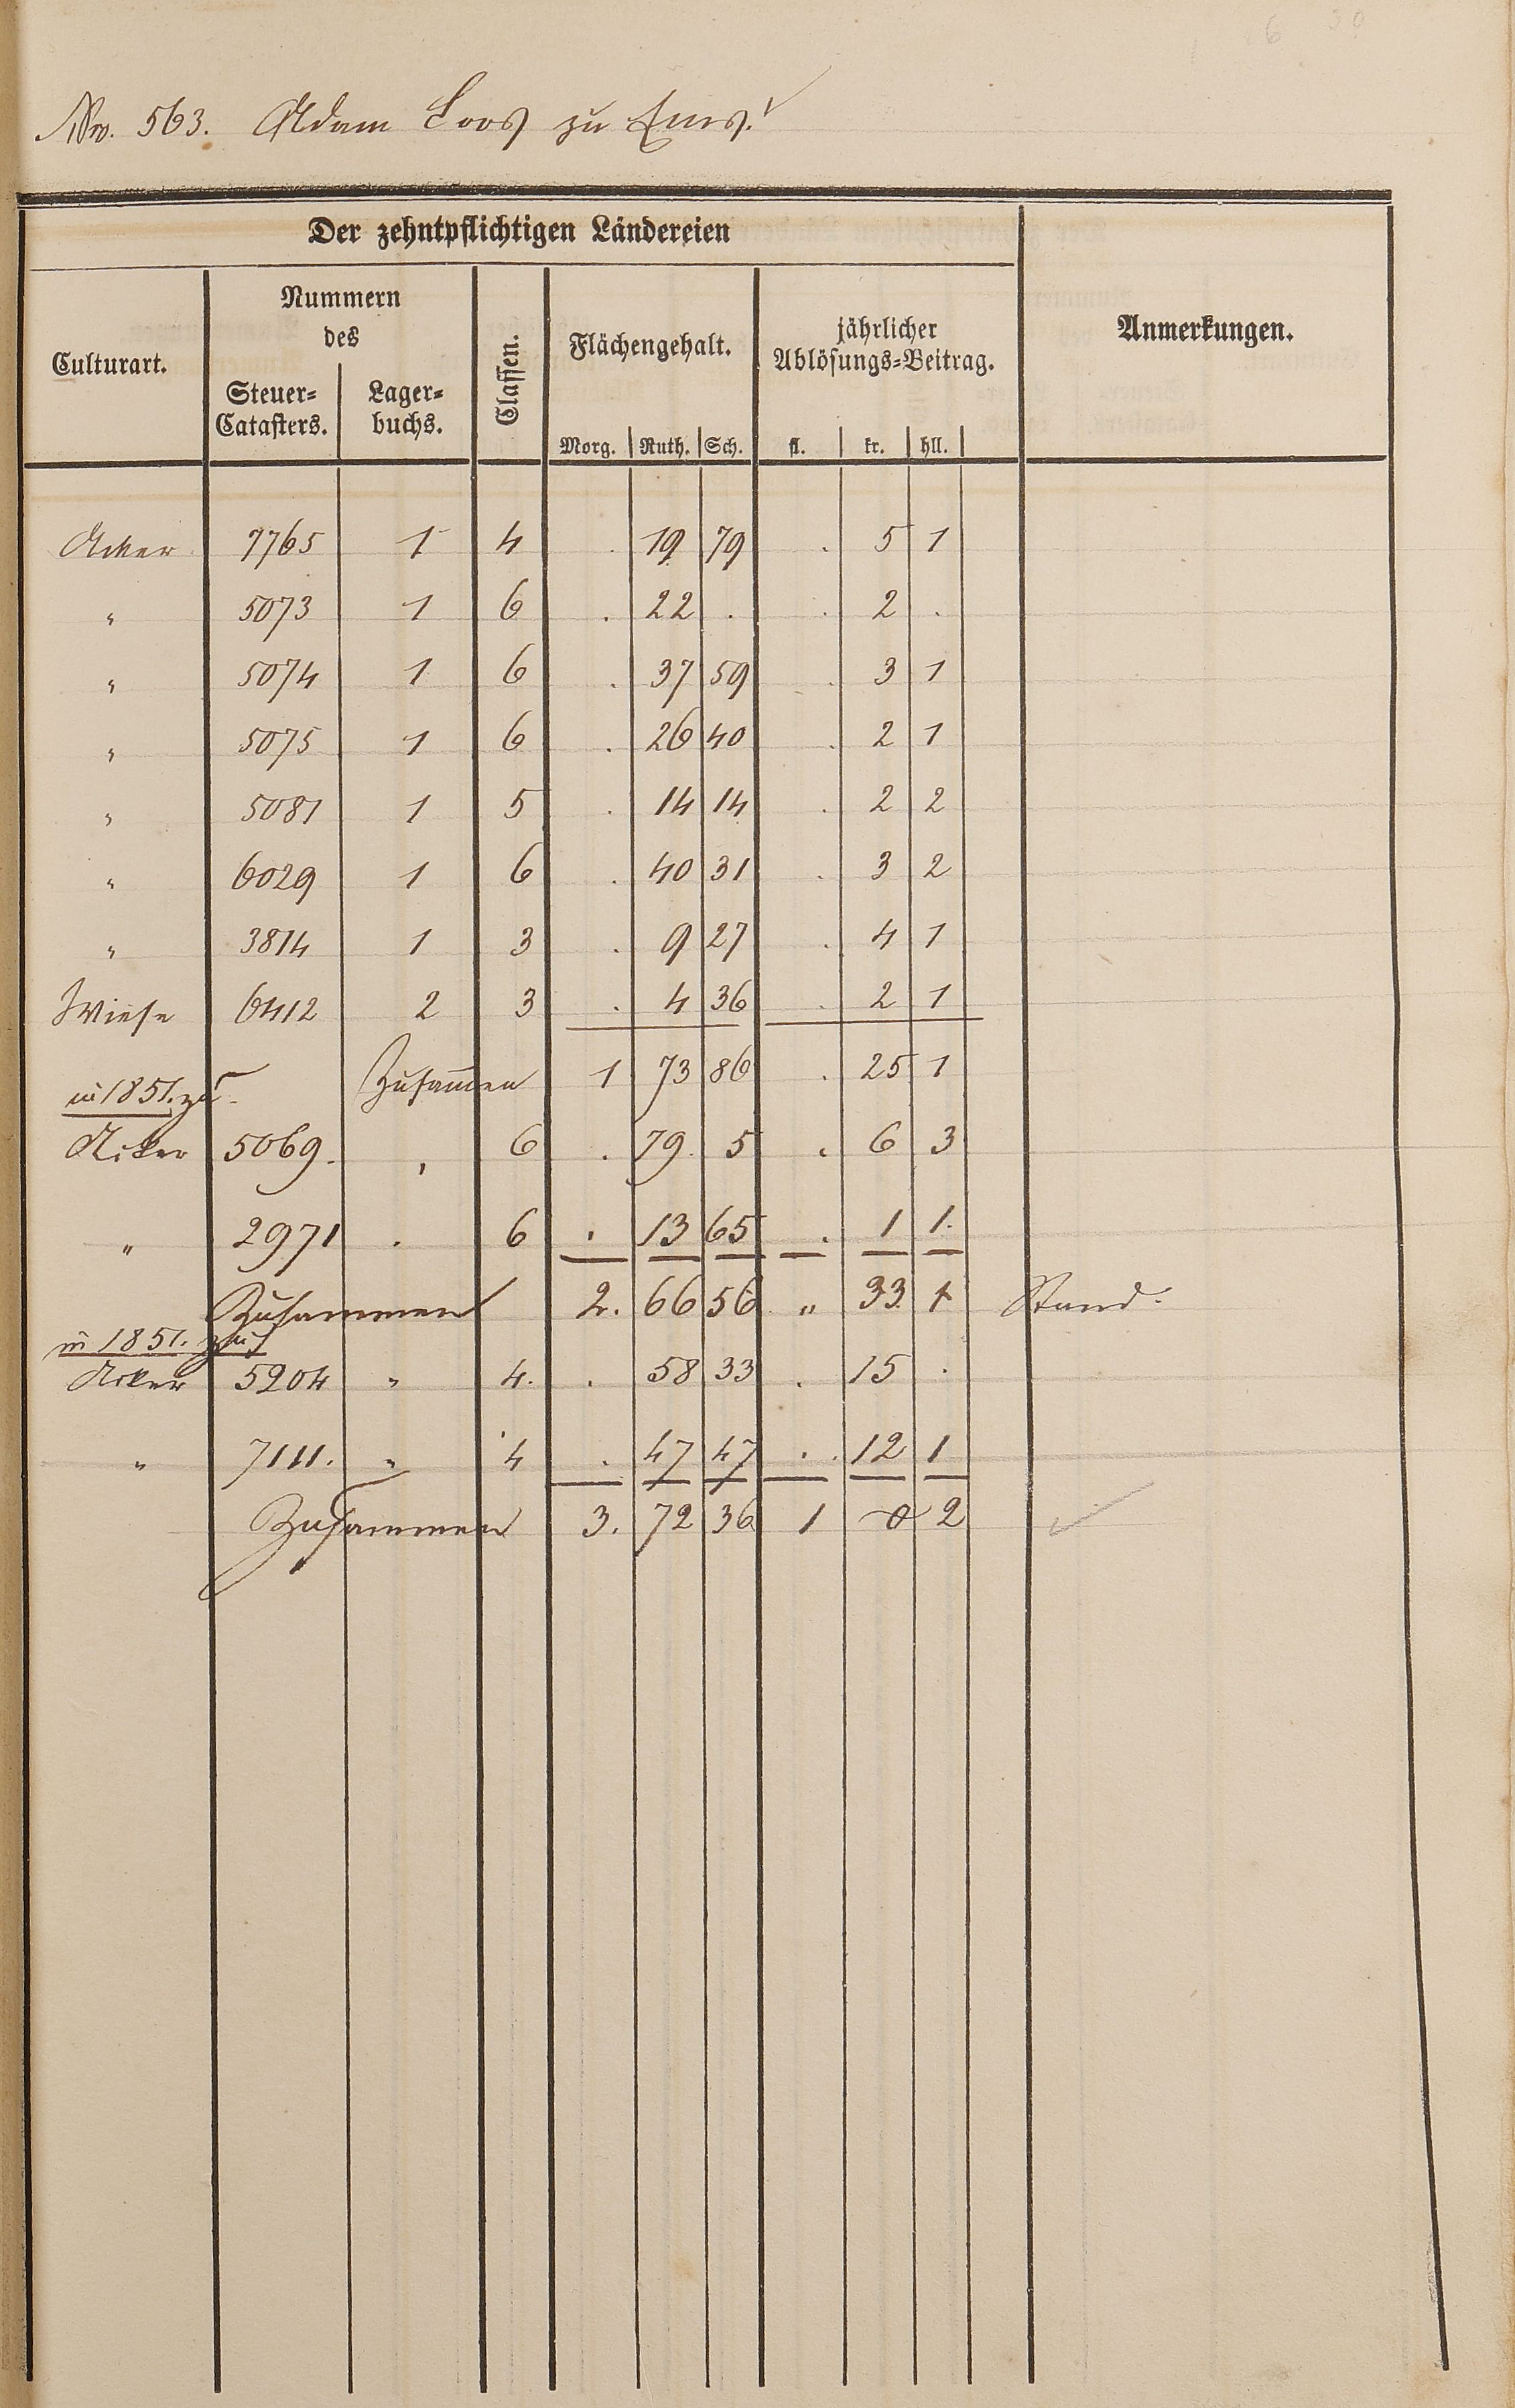 No. 563. Adam Loos zu Ems.
Der zehntpflichtigen Ländereien
Culturart. | Nummern des Steuer-Catasters. | Lager-buchs. | Classen. | Flächengehalt. Morg. | Ruth. | Sch. | jährlicher Ablösungs-Beitrag. fl. | kr. | hll. | Anmerkungen.
Acker 7765 1 4 . 19 79 . 5 1
" 5073 1 6 . 22 . . 2 .
" 5074 1 6 . 37 59 . 3 1
" 5075 1 6 . 26 40 . 2 1
" 5081 1 5 . 14 14 . 2 2
" 6029 1 6 . 40 31 . 3 2
" 3814 1 3 . 9 27 . 4 1
Wiese 6412 2 3 . 4 36 . 2 1
Zusammen 1 73 86 . 25 1
in 1851. zu
Acker 5069. , 6 . 79. 5 . 6 3
" 2971 . 6 . 13 65 . 1 1.
Zusammen 2. 66 56 " 33. 1 Stand.
in 1851. zu
Acker 5204 " 4. . 58 33 . 15 .
" 7111. " 4 . 47 47 . 12 1
Zusammen 3. 72 36 1 0 2